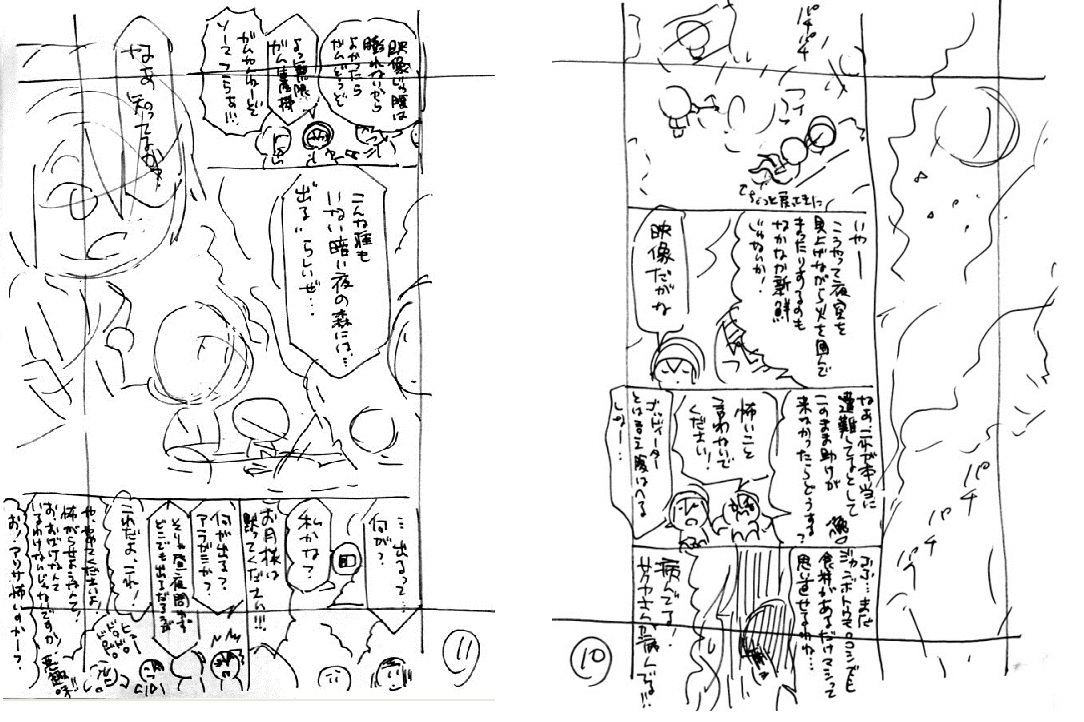 パチ
パチ
パチ
パチ
ワイ
ワイ
ちょっと戻ってきに
いやー
こうやって夜空を
見上げながら火を囲んで
まったりするのも
なかなか新鮮
じゃないか!
映像だがな
ねぇ、これで本当に
遭難してたとして
このまま助けが
来なかったらどうする?
怖いこと
言わないで
ください!
ゴッドイーター
とはいえ腹はへる
しなー…
ふふ…まだ
ジャイアントトウモロコシでも
食料があるだけマシって
思いさせるわね…
病んでる!
サクヤさんが病んでる!!
10
映像じゃ腹は
膨れないから
よかったら
ガムどうぞ
よっ無限
ガム生産機
がんもねーぞ
ソーマてらぁ!!
なあ
知ってるか?
こんな怪も
いない暗い夜の森には…
"出る"らしいぜ…
…出るって…
何が?
私かな?
お月様は
黙ってください!!!
何が出る?
アラガミか?
そりゃ昼夜問わず
どこでも出るだろうが
これだよ、これ!
や、やめてくださいよ!
怖がらせようったって!
おばけなんて
いるわけないじゃないですか
お?アリサ怖いのかー?
悪趣味!!
11